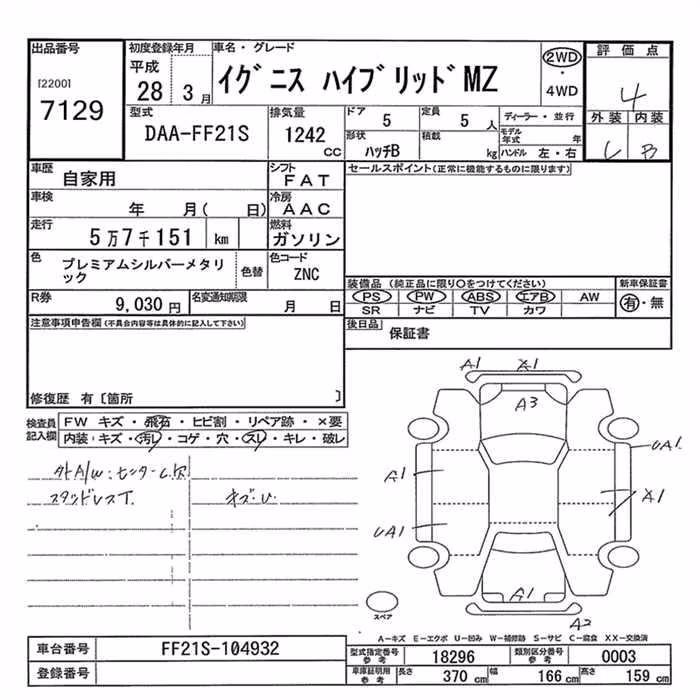 出品番号
[2200]
7129
初度登録年月
平成
28 3月
車名・グレード
イグニス ハイブリッドMZ
2WD
・
4WD
評価点
4
外装 内装
C B
型式
DAA-FF21S
排気量
1242
CC
ドア
5
定員
5 人
ディーラー・並行
形状
ハッチB
積載
kg
モデル年式 年
ハンドル 左・右
車歴
自家用
シフト
FAT
車検
年 月( 日)
冷房
AAC
走行
5万7千151 km
燃料
ガソリン
色
プレミアムシルバーメタリ
ック
色替
色コード
ZNC
R券
9,030円
名変通知期限
月 日
セールスポイント(正常に機能するものに限ります)
装備品 (純正品に限り○をつけてください)
PS PW ABS エアB AW
SR ナビ TV カワ
新車保証書
有・無
後日品
保証書
注意事項申告欄(不具合内容等は具体的に記入して下さい)
修復歴 有〔箇所 〕
検査員
記入欄
FW キズ・飛石・ヒビ割・リペア跡・×要
内装:キズ・汚レ・コゲ・穴・スレ・キレ・破レ
外A/W:センターC欠
スタッドレスT.
キズ・U
A1 X1
A3
UA1
A1
X1
UA1
A1
A2
スペア
A-キズ E-エクボ U-凹み W-補修跡 S-サビ C-腐食 XX-交換済
車台番号 FF21S-104932
登録番号
型式指定番号
参考
18296
類別区分番号
参考
0003
車庫証明用
参考
長さ 370 cm 幅 166 cm 高さ 159 cm